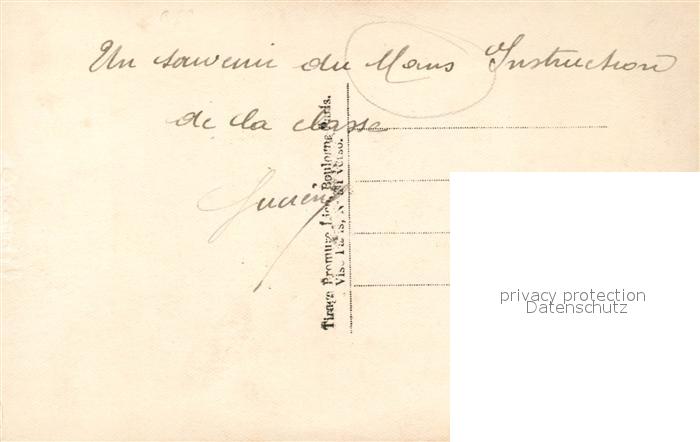 Un souvenir du Mans Instruction
de la classe
Lucien
Tirage Bromure Lion Boulogne Paris.
Visé Paris, N° au Verso.
privacy protection
Datenschutz